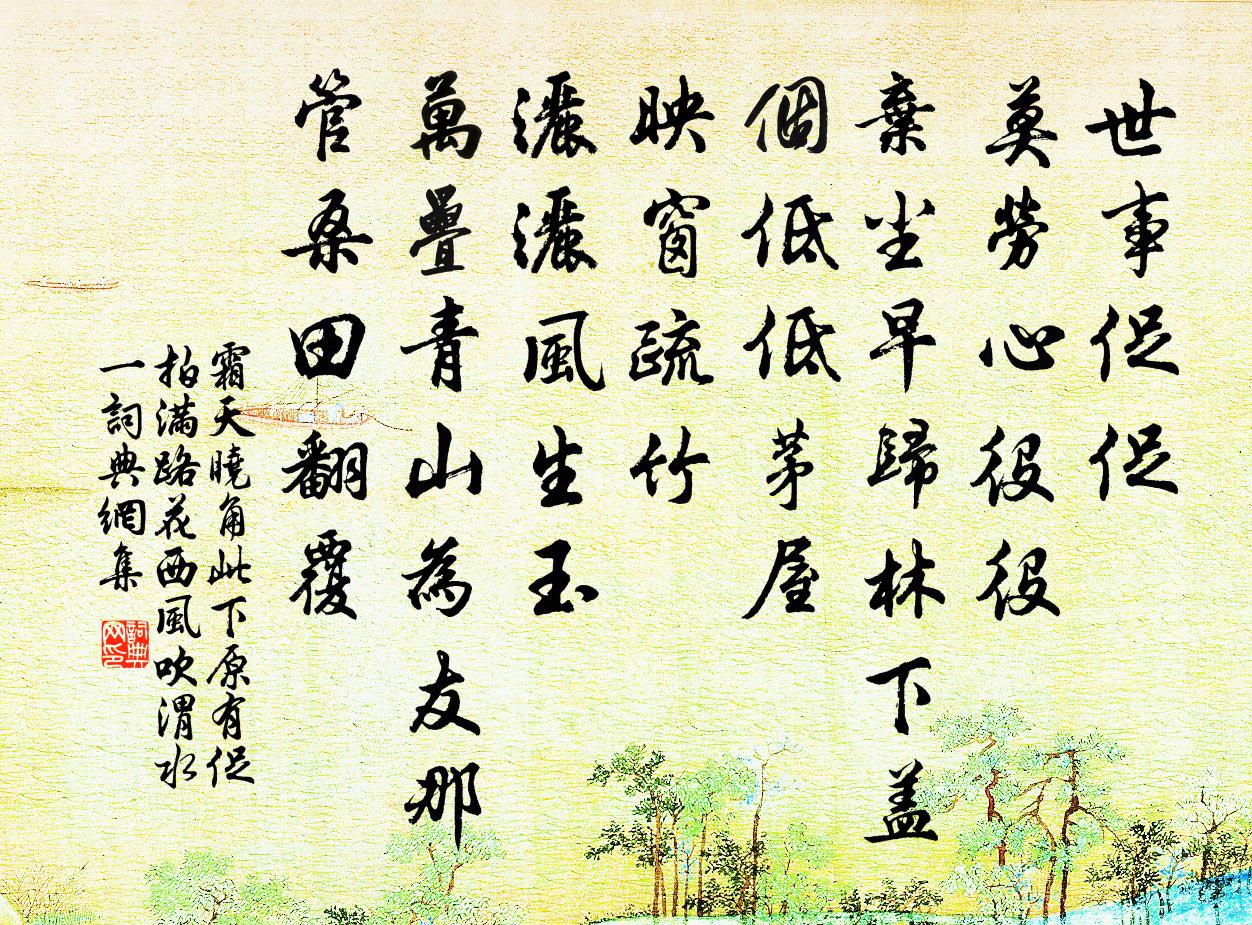 世事促促
莫勞心役役
棄尘早歸林下盖
個低低茅屋
映窗疏竹
灑灑風生玉
萬疊青山為友那
管桑田翻覆
霜天曉角此下原有促
拍滿路花西風吹渭水
一詞典網集
詞典
网印